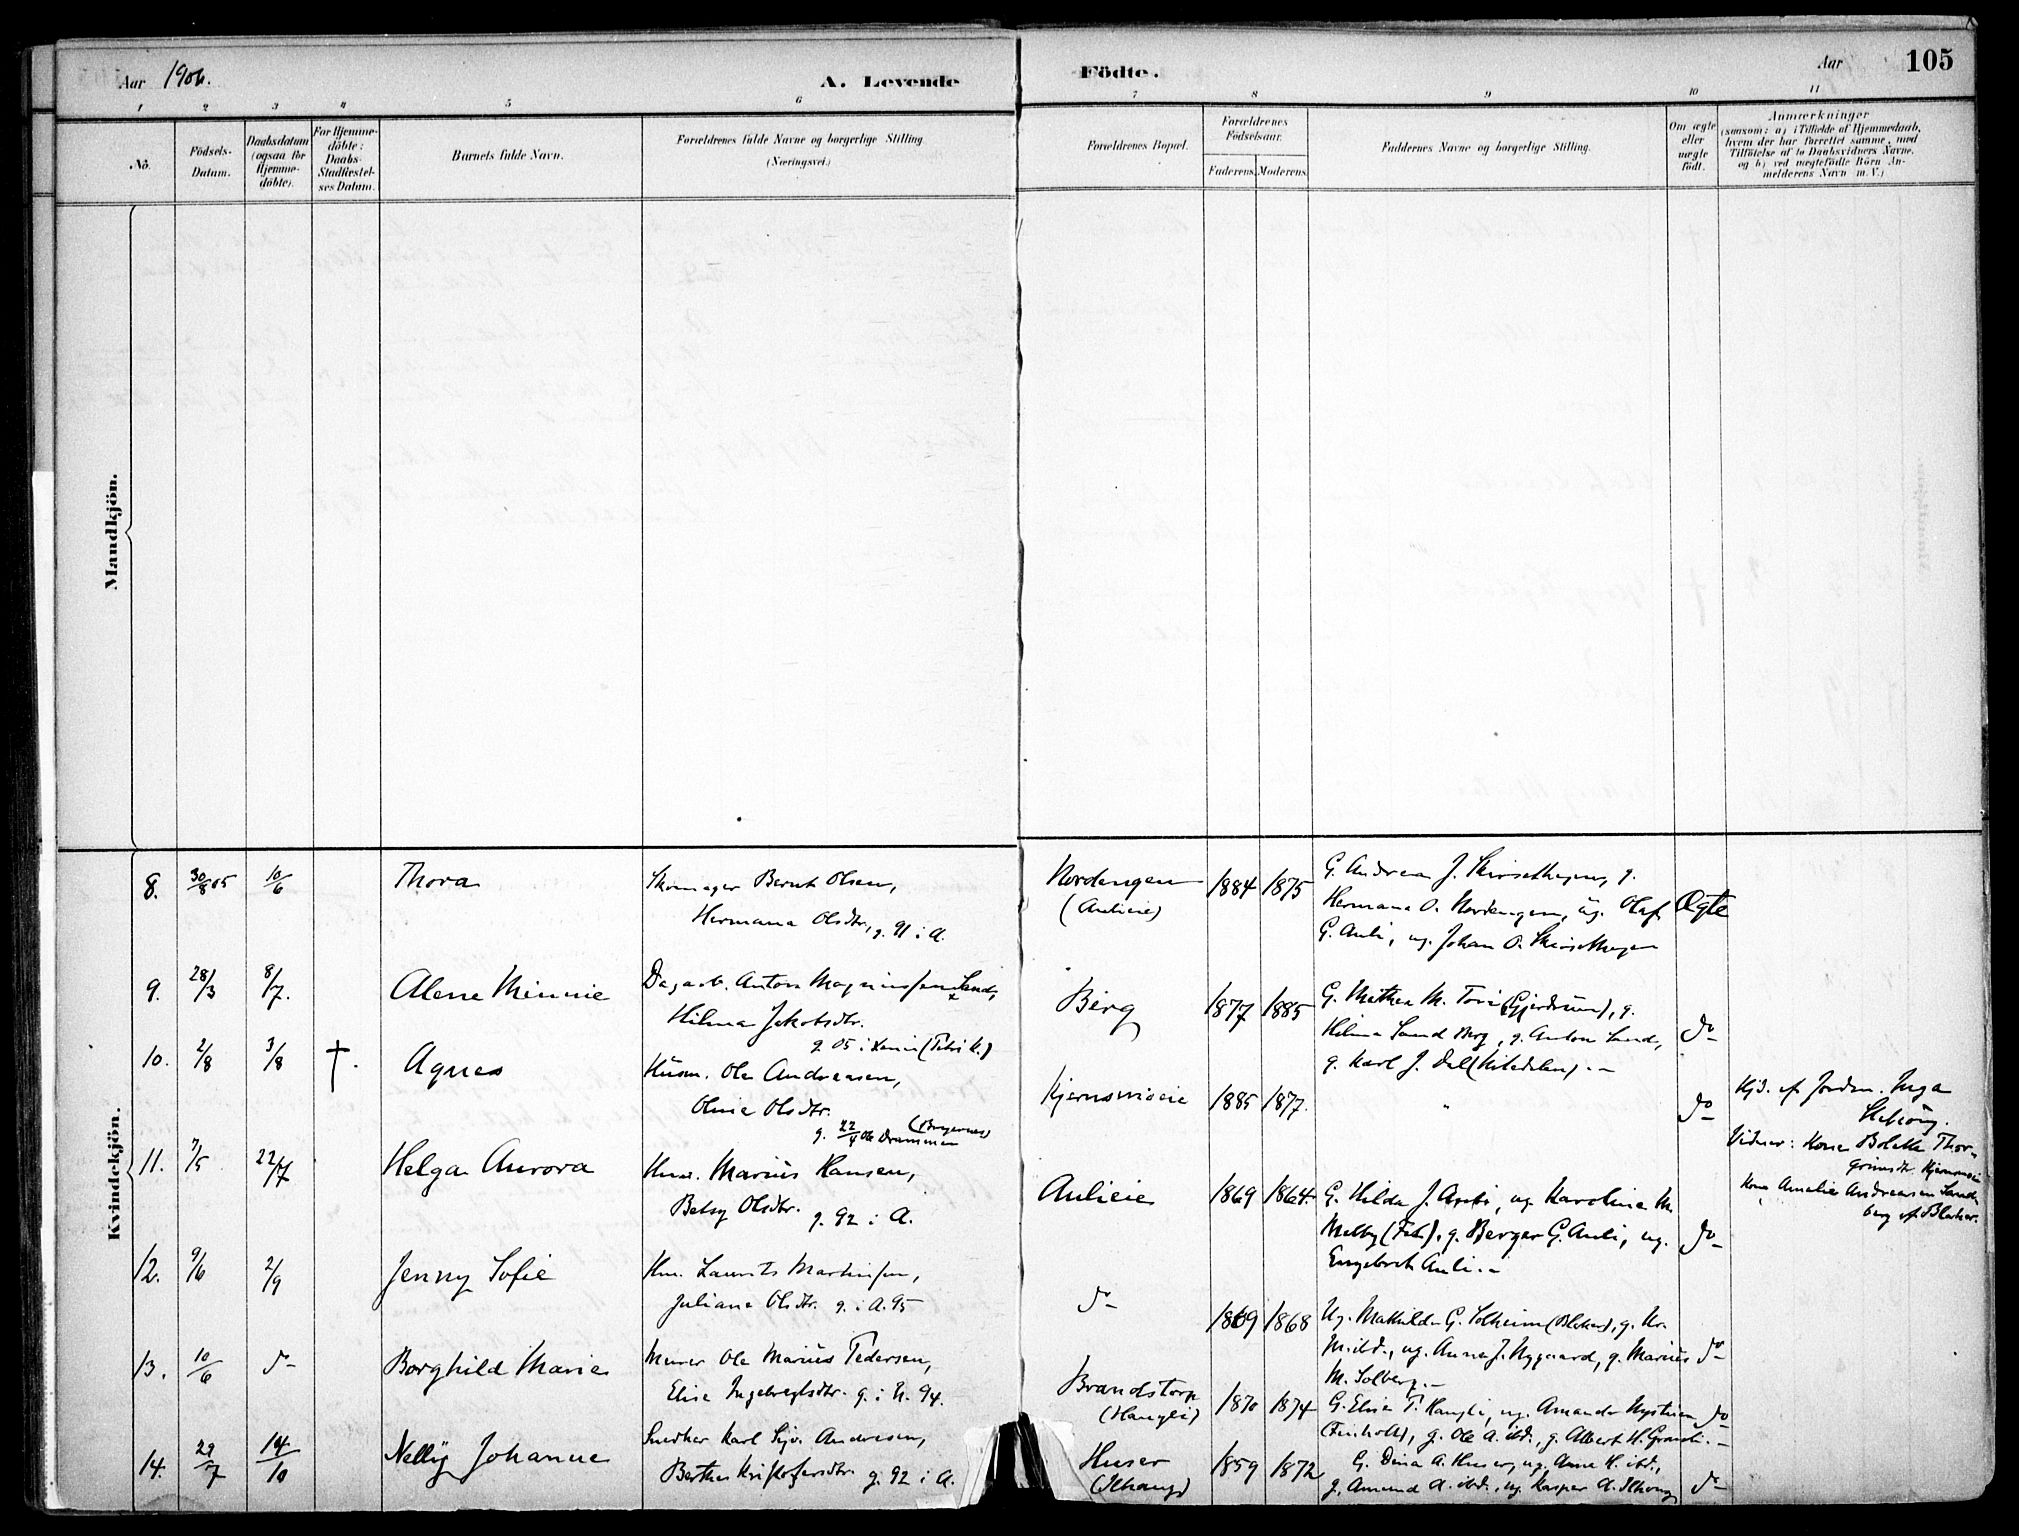 Aar 1906.
A. Levende
Födte.
Aar
105
1 2 3 4 5 6 7 8 9 10 11
No.
Födsels-
Datum.
Daabsdatum
(ogsaa for
Hjemme-
döbte).
For Hjemme-
döbte:
Daabs-
Stadfæstel-
ses Datum.
Barnets fulde Navn.
Forældrenes fulde Navne og borgerlige Stilling
(Næringsvei.)
Forældrenes Bopæl.
Forældrenes
Födselsaar.
Faderens. Moderens.
Faddernes Navne og borgerlige Stilling.
Om ægte
eller
uægte
födt.
Anmærkninger
(saasom: a) i Tilfælde af Hjemmedaab,
hvem der har forrettet samme, med
Tilföielse af to Daabsvidners Navne,
og b) ved uægtefödte Börn An-
melderens Navn m.V.)
Mandkjön.
Kvindekjön.
8. 30/8 05 10/6 Thora
Skomager Bernt Olsen,
Hermana Olsdtr., g. 91 i A.
Nordengen
(Aulieie)
1884 1875
G. Andrea J. g.
Hermana O. Nordengen, ug. Olaf
G. Auli, ug. Johan O.
Ægte
9. 28/3 8/7. Alene Minnie
Dagarb. Anton Magnussen Sand,
Hilma Jakobsdtr.
g. 05 i
Berg
1877 1885
G. Mathea M. (Gjerdrum), g.
Hilma Sand Berg, g. Anton Sand,
g. Karl J. Dal
do
10. 2/8 3/8 †. Agnes
Husm. Ole Andreasen,
Olsdtr.
g. 22/4 06 Drammen
(Bragernes)
Kjernsmoeie
1885 1877.
"
do
Hjd. af Jordm. Inga
Vidner: Kone Bolette Thor-
grimsdtr.
Kone Amalie Andreasen Sand-
berg af Blaker.
11. 7/5 22/7 Helga Aurora
Husm. Marius Hansen,
Betsy Olsdtr. g. 92 i A.
Aulieie
1869 1864.
G. Hilda J. Auli, ug. Karoline M.
Melby (Fet), g. Berger G. Auli, ug.
Engebret Auli.-
do
12. 9/6 2/9 Jenny Sofie
Hm. Laurits Martinsen,
Juliane Olsdtr. g. i A. 95
do
1869 1868
Ug. Mathilde G. Solheim (Blaker), g.
ug. Anna J. Nygaard, g. Marius
M. Solberg.-
do
13. 10/6 do Borghild Marie
Murer Ole Marius Pedersen,
Elise Ingebregtsdtr. g. i 94.
Brandstorp
(Haugli)
1870 1874
G. Elise T. Haugli, ug. Amanda Nystuen
g. Ole A. ibd., g. Albert H.
do
14. 29/7 14/10 Nelly Johanne
Snedker Karl Andresen,
Berthe Kristofersdtr. g. 92 i A.
Huser
1859 1872
G. Dina A. Huser, ug. Anne H. ibd.,
g. Amund A. ibd., ug. Kasper A.
do